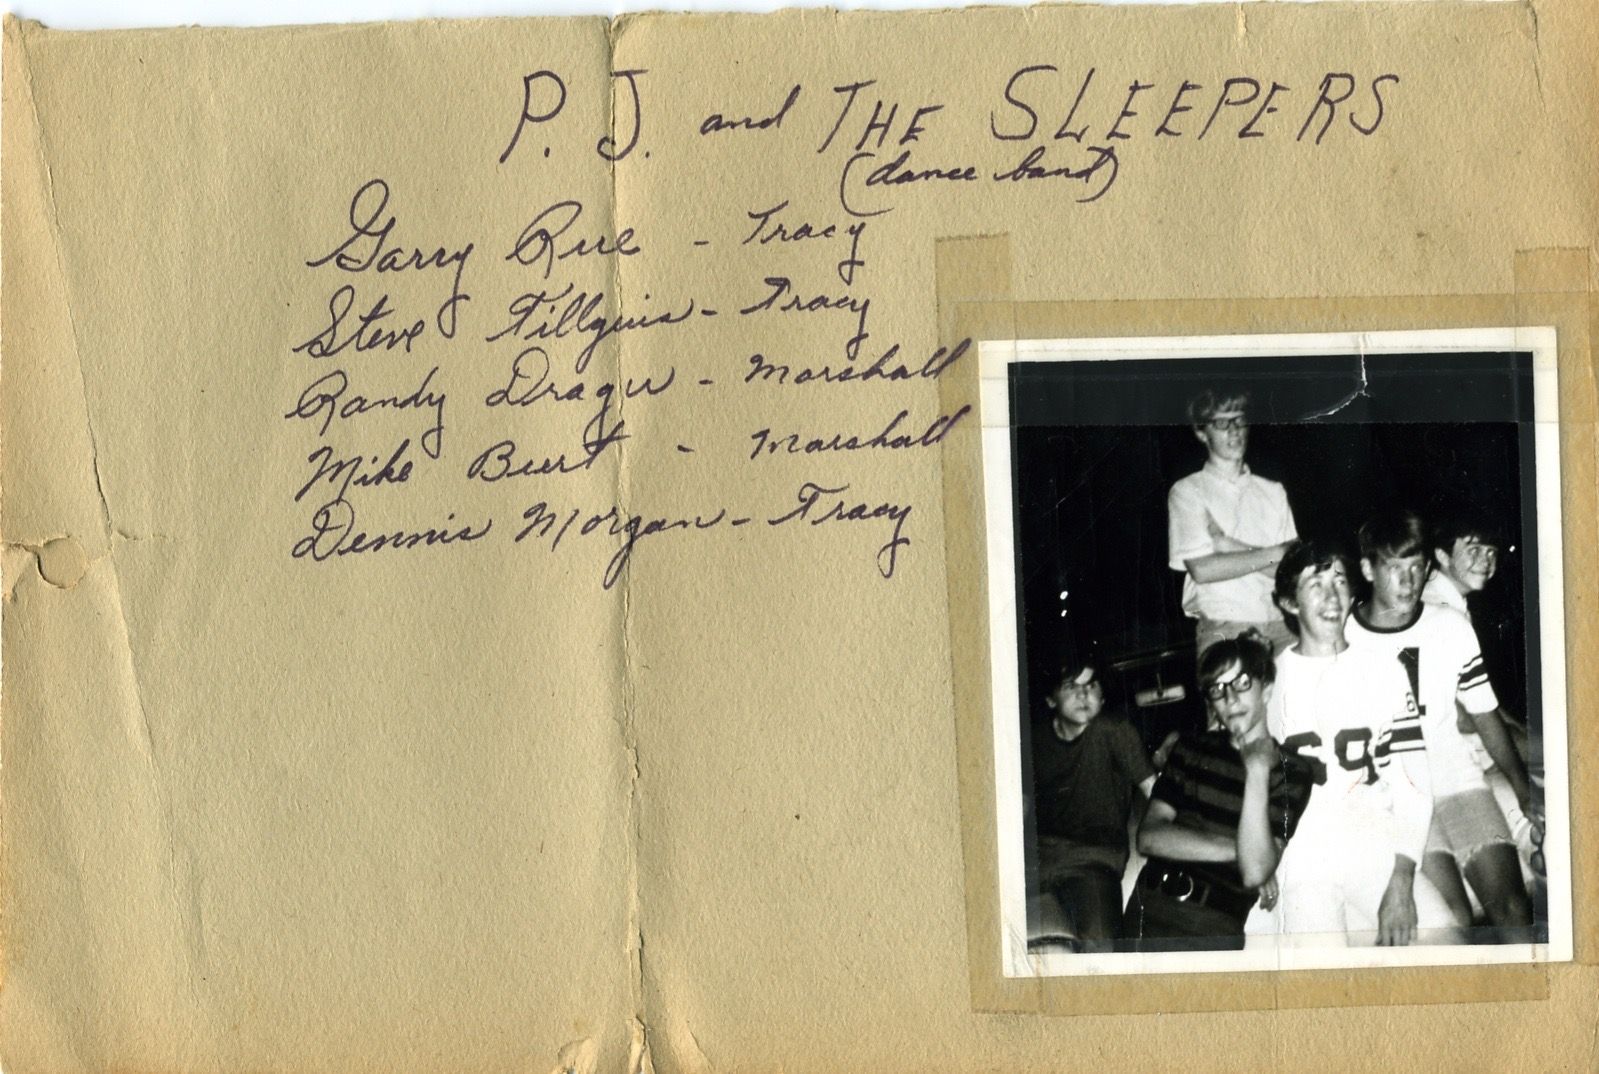 P. J. and THE SLEEPERS
(dance band)
Garry Rue - Tracy
Steve Fillgins - Tracy
Randy Dragu - Marshall
Mike Burt - Marshall
Dennis Morgan - Tracy
69
1